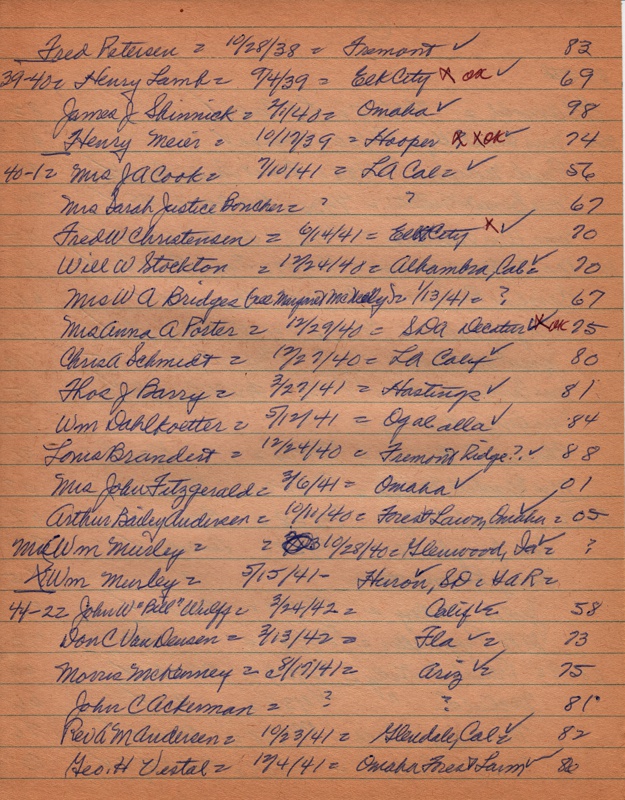 Fred Petersen = 10/28/38 = Fremont ✓ 83
39-40= Henry Lamb = 9/4/39 = Elk City X OK ✓ 69
James J Skinnick = 2/1/40 = Omaha ✓ 98
Henry Meier = 10/17/39 = Hooper X X OK ✓ 74
40-1= Mrs J A Cook = 7/10/41 = LA Cal = ✓ 56
Mrs Sarah Justice Boucher = ? ? 67
Fred W Christensen = 6/14/41 = Elk City X ✓ 70
Will W Stockton = 12/24/40 = Alhambra, Cal = 70
Mrs W A Bridges (nee Margaret McNally) = 1/13/41 = ? 67
Mrs Anna A Porter = 12/29/40 = SDA Decatur X OK 75
Chris A Schmidt = 12/27/40 = LA Cal ✓ 80
Thos J Barry = 3/27/41 = Hastings ✓ 81
Wm Dahlkoetter = 5/12/41 = Ogalalla ✓ 84
Louis Brandert = 12/24/40 = Fremont Ridge? ✓ 88
Mrs John Fitzgerald = 3/6/41 = Omaha ✓ 01
Arthur Bailey Andersen = 10/11/40 = Forest Lawn, Omaha = 05
Mrs Wm Murley = = 10/28/40 = Glenwood, Ia = ?
X Wm Murley = 5/15/41 - Huron, SD = GAR =
41-2= John W "Bill" Wulff = 3/24/42 = Calif ✓ = 58
Don C Van Deusen = 3/13/42 = Fla ✓ = 73
Morris McKenney = 8/17/41 = Ariz ✓ = 75
John C Ackerman = ? ? 81
Rev A M Andersen = 10/23/41 = Glendale, Cal = ✓ 82
Geo. H Vestal = 12/4/41 = Omaha Forest Lawn ✓ 86